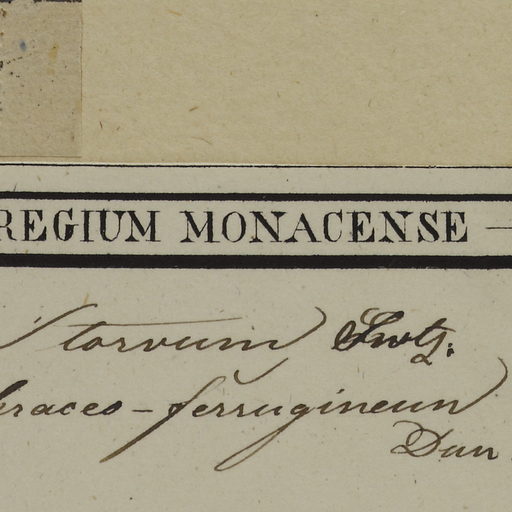 REGIUM MONACENSE —
torvum) Swtz.
hraceo-ferrugineum)
Dun